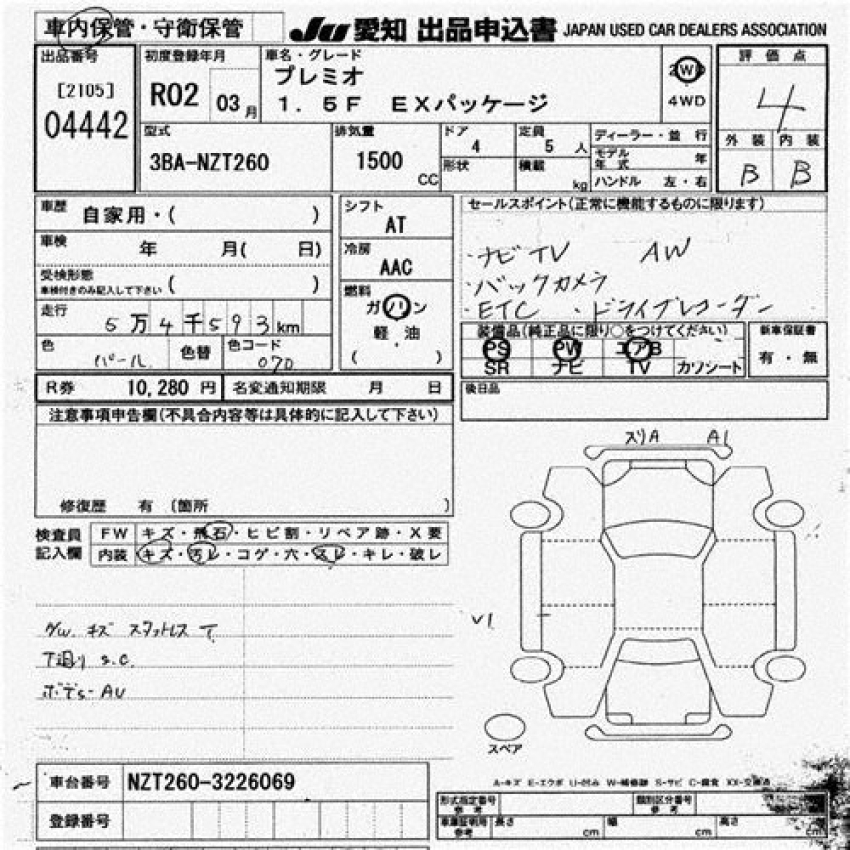 車内保管・守衛保管
JU 愛知 出品申込書 JAPAN USED CAR DEALERS ASSOCIATION
出品番号
[2105]
04442
初度登録年月
R02 03月
車名・グレード
プレミオ
1.5F EXパッケージ
2WD
4WD
評価点
4
外装 内装
B B
型式
3BA-NZT260
排気量
1500
CC
ドア
4
定員
5 人
形状
積載
kg
ディーラー・並行
モデル年式 年
ハンドル 左・右
車歴
自家用・( )
車検
年 月( 日)
受検形態
車検付きのみ記入して下さい ( )
走行
5万4千593km
色
パール
色替
色コード
070
シフト
AT
冷房
AAC
燃料
ガソリン
軽・油
( )
セールスポイント(正常に機能するものに限ります)
・ナビTV AW
・バックカメラ
・ETC ・ドライブレコーダー
装備品(純正品に限り○をつけてください)
PS PW エアB
SR ナビ TV カワシート
新車保証書
有・無
R券 10,280円
名変通知期限 月 日
後日品
注意事項申告欄(不具合内容等は具体的に記入して下さい)
修復歴 有 〔箇所 〕
検査員
記入欄
FW キズ・飛石・ヒビ割・リペア跡・X要
内装 キズ・汚レ・コゲ・穴・スレ・キレ・破レ
A/W キズ スタットレス T
下廻り S.C
ズリA A1
V1
スペア
A-キズ E-エクボ U-凹み W-補修跡 S-サビ C-腐食 XX-交換済
車台番号 NZT260-3226069
登録番号
形式指定番号
参考
類別区分番号
参考
車庫証明用
参考
長さ cm 幅 cm 高さ cm